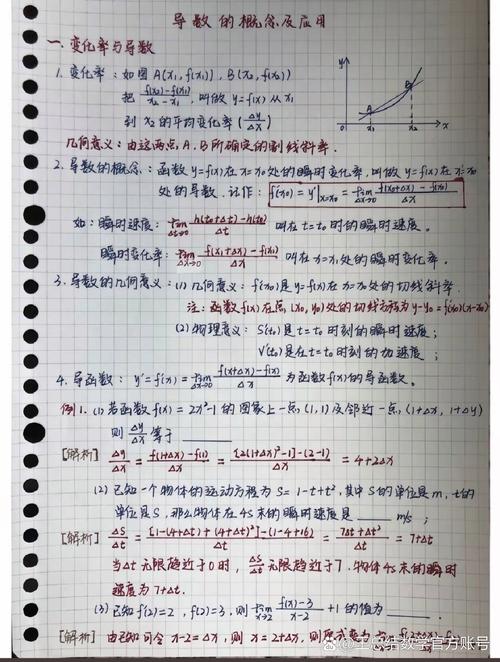 导数的概念及应用
一.变化率与导数
1. 变化率：如图 A(x₁, f(x₁)), B(x₂, f(x₂))
把 (f(x₂)-f(x₁))/(x₂-x₁), 叫做 y=f(x) 从 x₁
到 x₂ 的平均变化率 (Δy/Δx)
y
A
B
0
x₁
x₂
x
几何意义：由这两点 A, B 所确定的割线斜率.
2. 导数的概念：函数 y=f(x) 在 x=x₀ 处的瞬时变化率, 叫做 y=f(x) 在 x=x₀
处的导数. 记作: f'(x₀) = y'|x=x₀ = lim Δx→0 (f(x₀+Δx) - f(x₀))/Δx
如：瞬时速度: lim Δt→0 (h(t₀+Δt)-h(t₀))/Δt 叫在 t=t₀ 时的瞬时速度。
瞬时变化率: lim Δx→0 (f(x₁+Δx)-f(x₁))/Δx 叫在 x=x₁ 处的瞬时变化率.
3. 导数的几何意义：(1) 几何意义: f'(x₀) 是 y=f(x) 在 x=x₀ 处的切线斜率.
注：函数 f(x) 在点 (x₀, y₀) 处的切线方程为 y-y₀ = f'(x₀)(x-x₀)
(2) 物理意义: S'(t₀) 是 t=t₀ 时刻的瞬时速度；
V'(t₀) 是在 t=t₀ 时刻的加速度；
4. 导函数: y'=f'(x) = lim Δx→0 (f(x+Δx)-f(x))/Δx 为函数 f(x) 的导函数。
例1. (1) 若函数 f(x) = 2x²-1 的图象上一点 (1,1) 及邻近一点 (1+Δx, 1+Δy)
则 Δy/Δx 等于 ______
[解析] Δy/Δx = (f(1+Δx)-f(1))/Δx = ([2(1+Δx)²-1]-(2-1))/Δx = 4+2Δx
(2) 已知一个物体的运动方程为 S=1-t+t², 其中 S 的单位是 m, t 的
单位是 S, 那么物体在 4s 末的瞬时速度是 ______ m/s；
[解析] ΔS/Δt = ([1-(4+Δt)+(4+Δt)²]-(1-4+16))/Δt = (7Δt+Δt²)/Δt = 7+Δt
当 Δt 无限趋近于 0 时, ΔS/Δt 无限趋近于 7. 物体 4s 末的瞬时
速度为 7+Δt.
(3) 已知 f(2)=2, f'(2)=3, 则 lim x→2 (f(x)-3)/(x-2) +1 的值为 ______.
[解析] 由已知可令 x-2=Δx, 则 x=2+Δx, 则原式变为